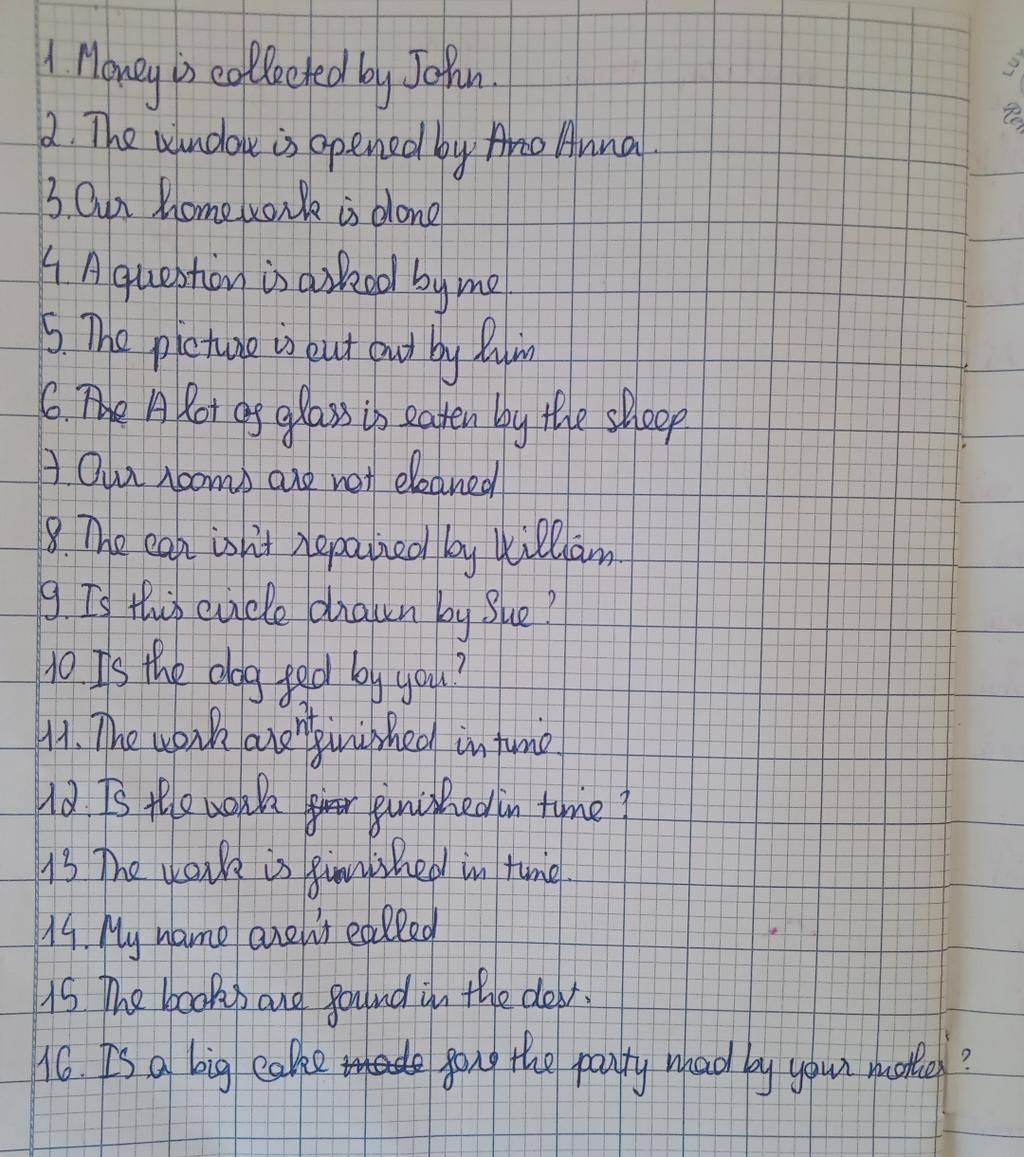 1. Money is collected by John.
2. The window is opened by Ano Anna.
3. Our homework is done
4. A question is asked by me.
5. The picture is cut out by him
6. The A lot of glass is eaten by the sheep.
7. Our rooms are not cleaned
8. The car isn't repaired by William.
9. Is this circle drawn by Sue?
10. Is the dog fed by you?
11. The work aren't finished in time.
12. Is the work finished in time?
13. The work is finnished in time.
14. My name aren't called
15. The books are found in the dest.
16. Is a big cake made for the party mad by your mother?